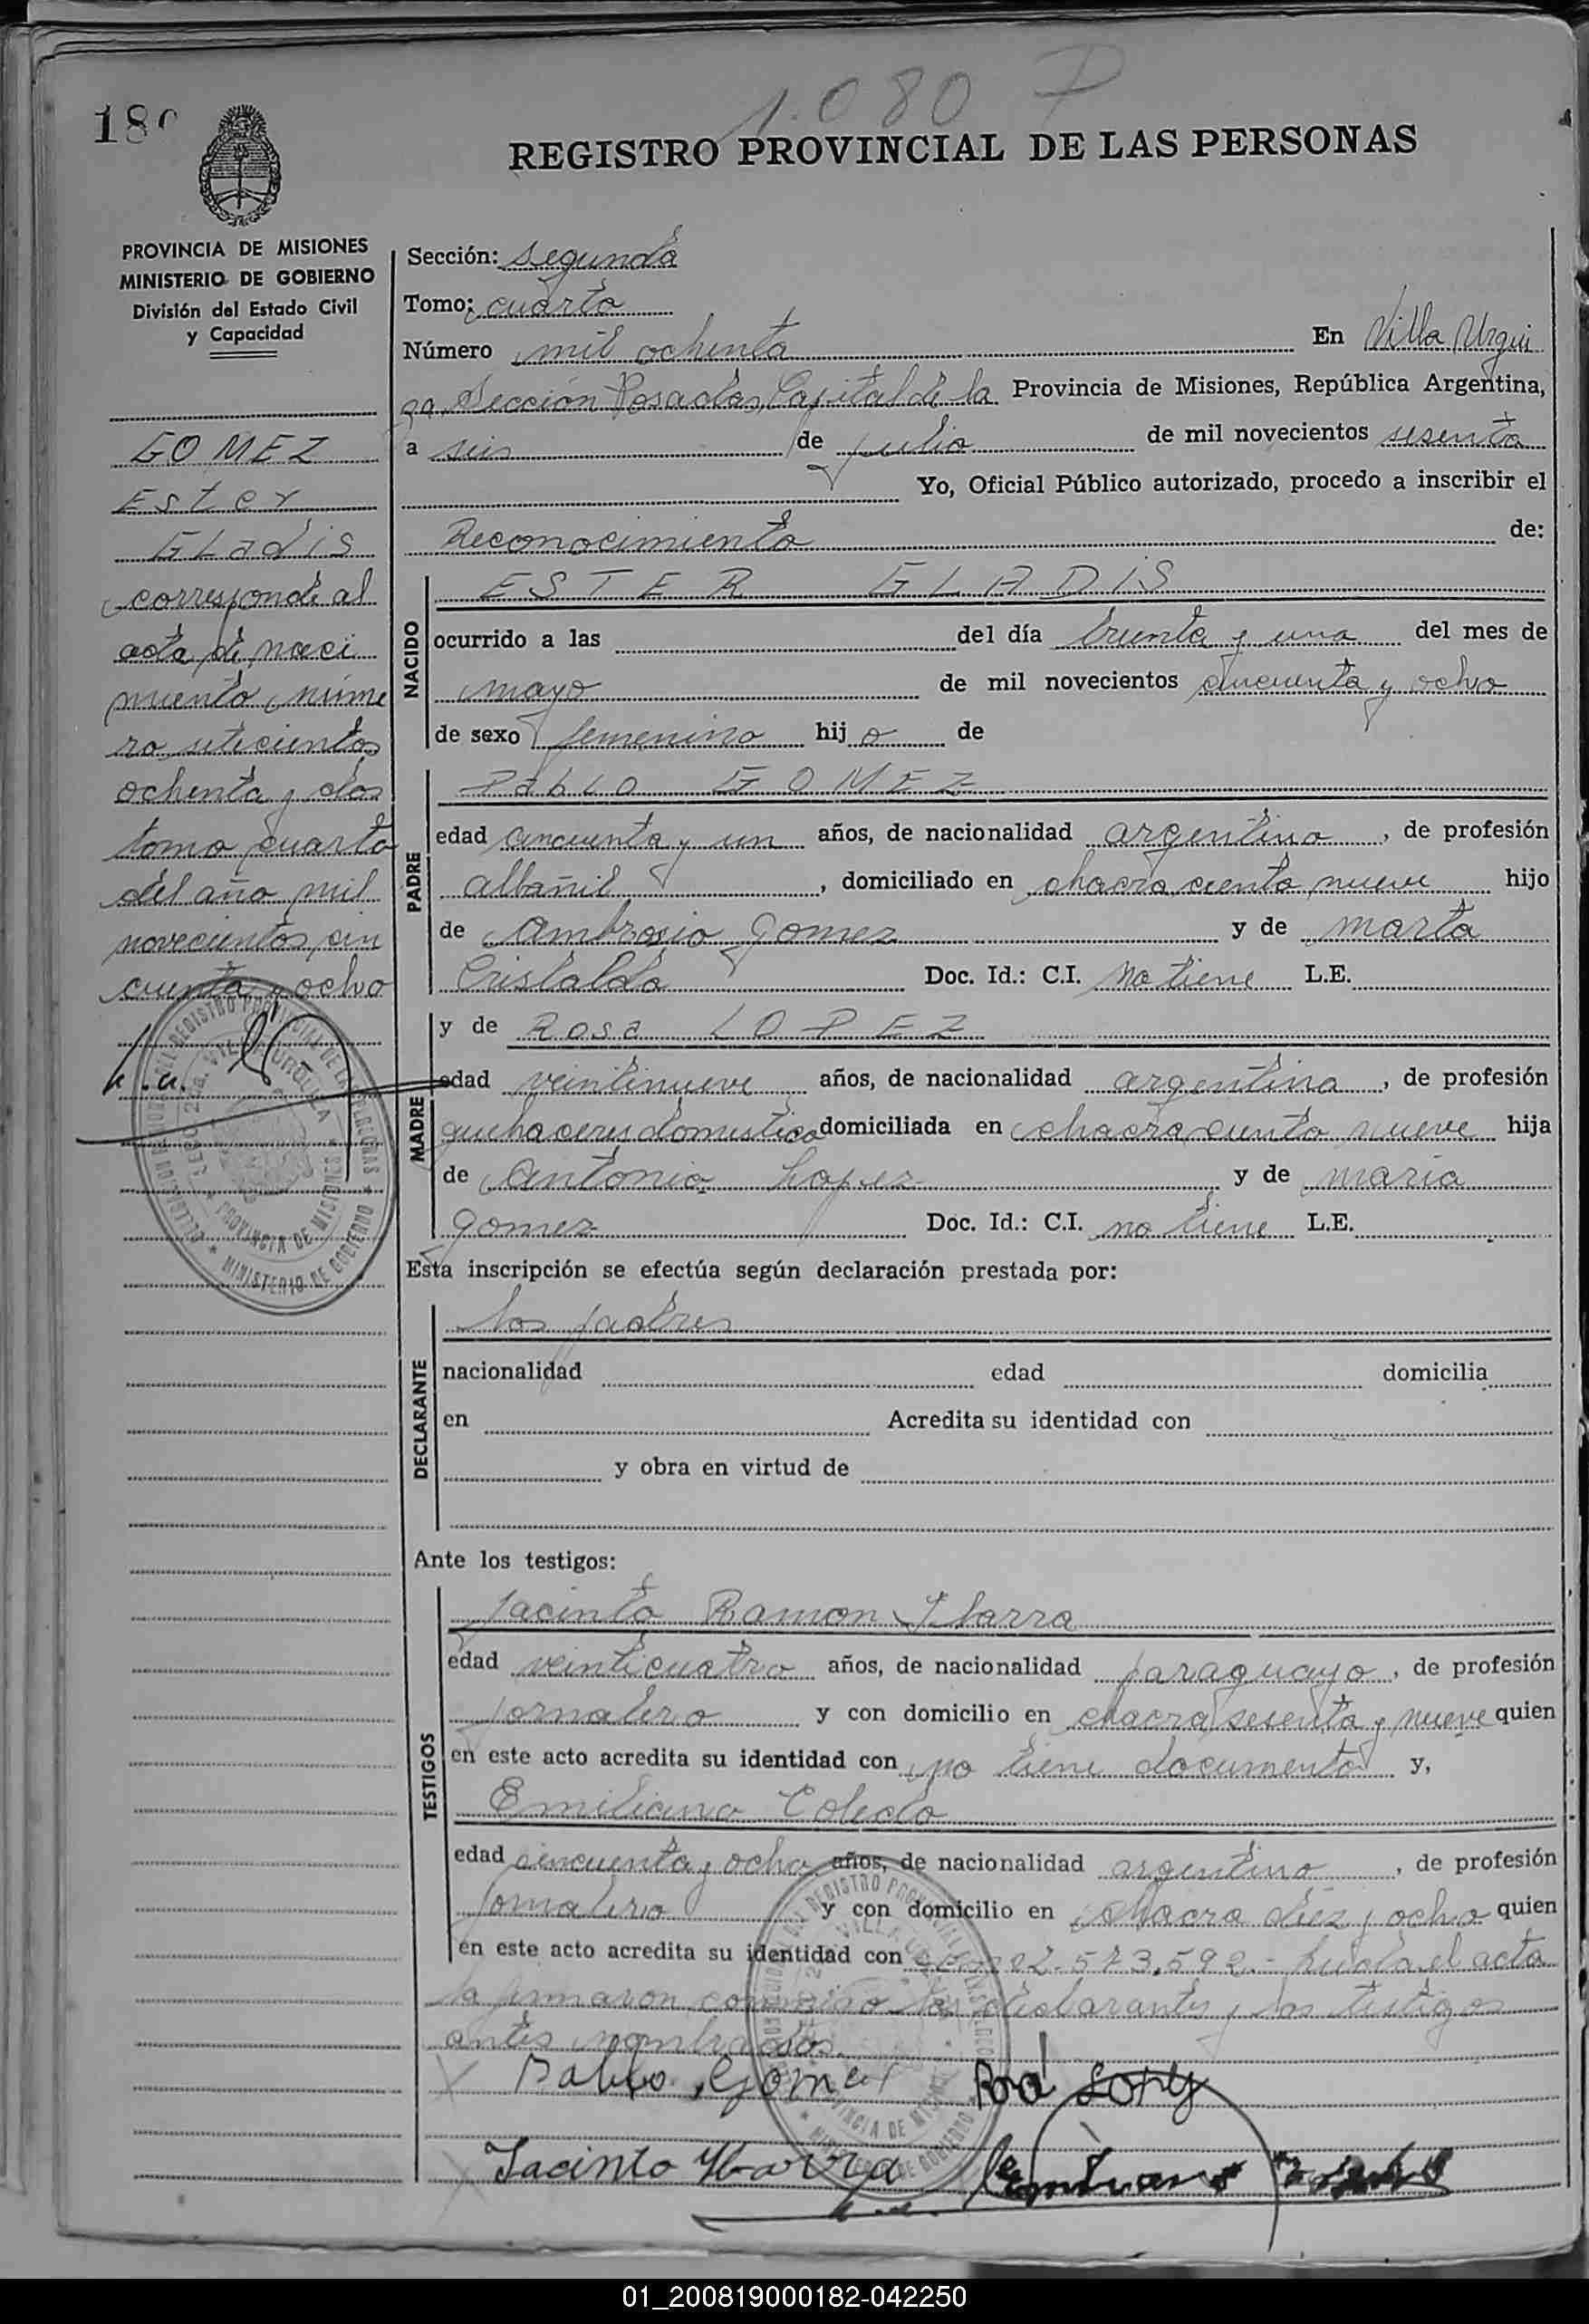 1.080 P
REGISTRO PROVINCIAL DE LAS PERSONAS
PROVINCIA DE MISIONES
MINISTERIO DE GOBIERNO
División del Estado Civil
y Capacidad
GOMEZ
Ester
Gladis
corresponde al
acta de naci
miento núme
ro setecientos
ochenta y dos
tomo cuarto
del año mil
novecientos cin
cuenta y ocho
Sección: segunda
Tomo: cuarto
Número mil ochenta En Villa Urqui
za, Sección Posadas, Capital de la Provincia de Misiones, República Argentina,
a seis de julio de mil novecientos sesenta
Yo, Oficial Público autorizado, procedo a inscribir el
Reconocimiento de:
NACIDO
ESTER GLADIS
ocurrido a las del día treinta y uno del mes de
mayo de mil novecientos cincuenta y ocho
de sexo femenino hij o de
PADRE
Pablo GOMEZ
edad cincuenta y un años, de nacionalidad argentino, de profesión
albañil, domiciliado en chacra ciento nueve hijo
de Ambrosio Gomez y de Marta
Cristaldo Doc. Id.: C.I. no tiene L.E.
MADRE
y de Rosa LOPEZ
edad veintinueve años, de nacionalidad argentina, de profesión
quehaceres domestico domiciliada en chacra ciento nueve hija
de Antonio Lopez y de Maria
Gomez Doc. Id.: C.I. no tiene L.E.
Esta inscripción se efectúa según declaración prestada por:
DECLARANTE
los padres
nacionalidad edad domicilia
en Acredita su identidad con
y obra en virtud de
Ante los testigos:
TESTIGOS
Jacinto Ramon Ibarra
edad veinticuatro años, de nacionalidad paraguayo, de profesión
jornalero y con domicilio en chacra sesenta y nueve quien
en este acto acredita su identidad con no tiene documento y,
Emiliano Toledo
edad cincuenta y ocho años, de nacionalidad argentino, de profesión
jornalero y con domicilio en chacra diez y ocho quien
en este acto acredita su identidad con 2.573.592.- Leida el acta
la firmaron conmigo los declarantes y los testigos
antes nombrados.
Pablo Gomez
Jacinto Ybarra
01_200819000182-042250